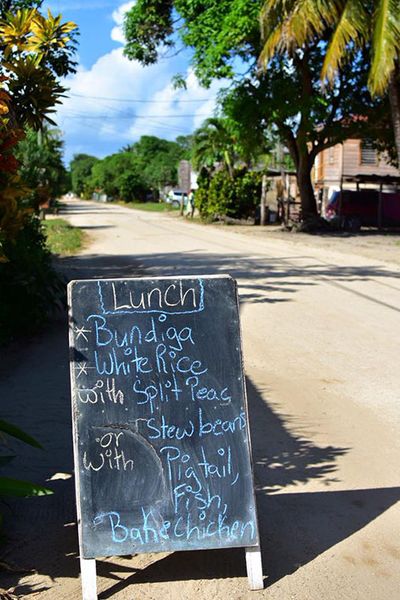 Lunch
*Bundiga
*White Rice
with Split Peas
Stew beans
or
with Pigtail,
Fish,
Bake chicken